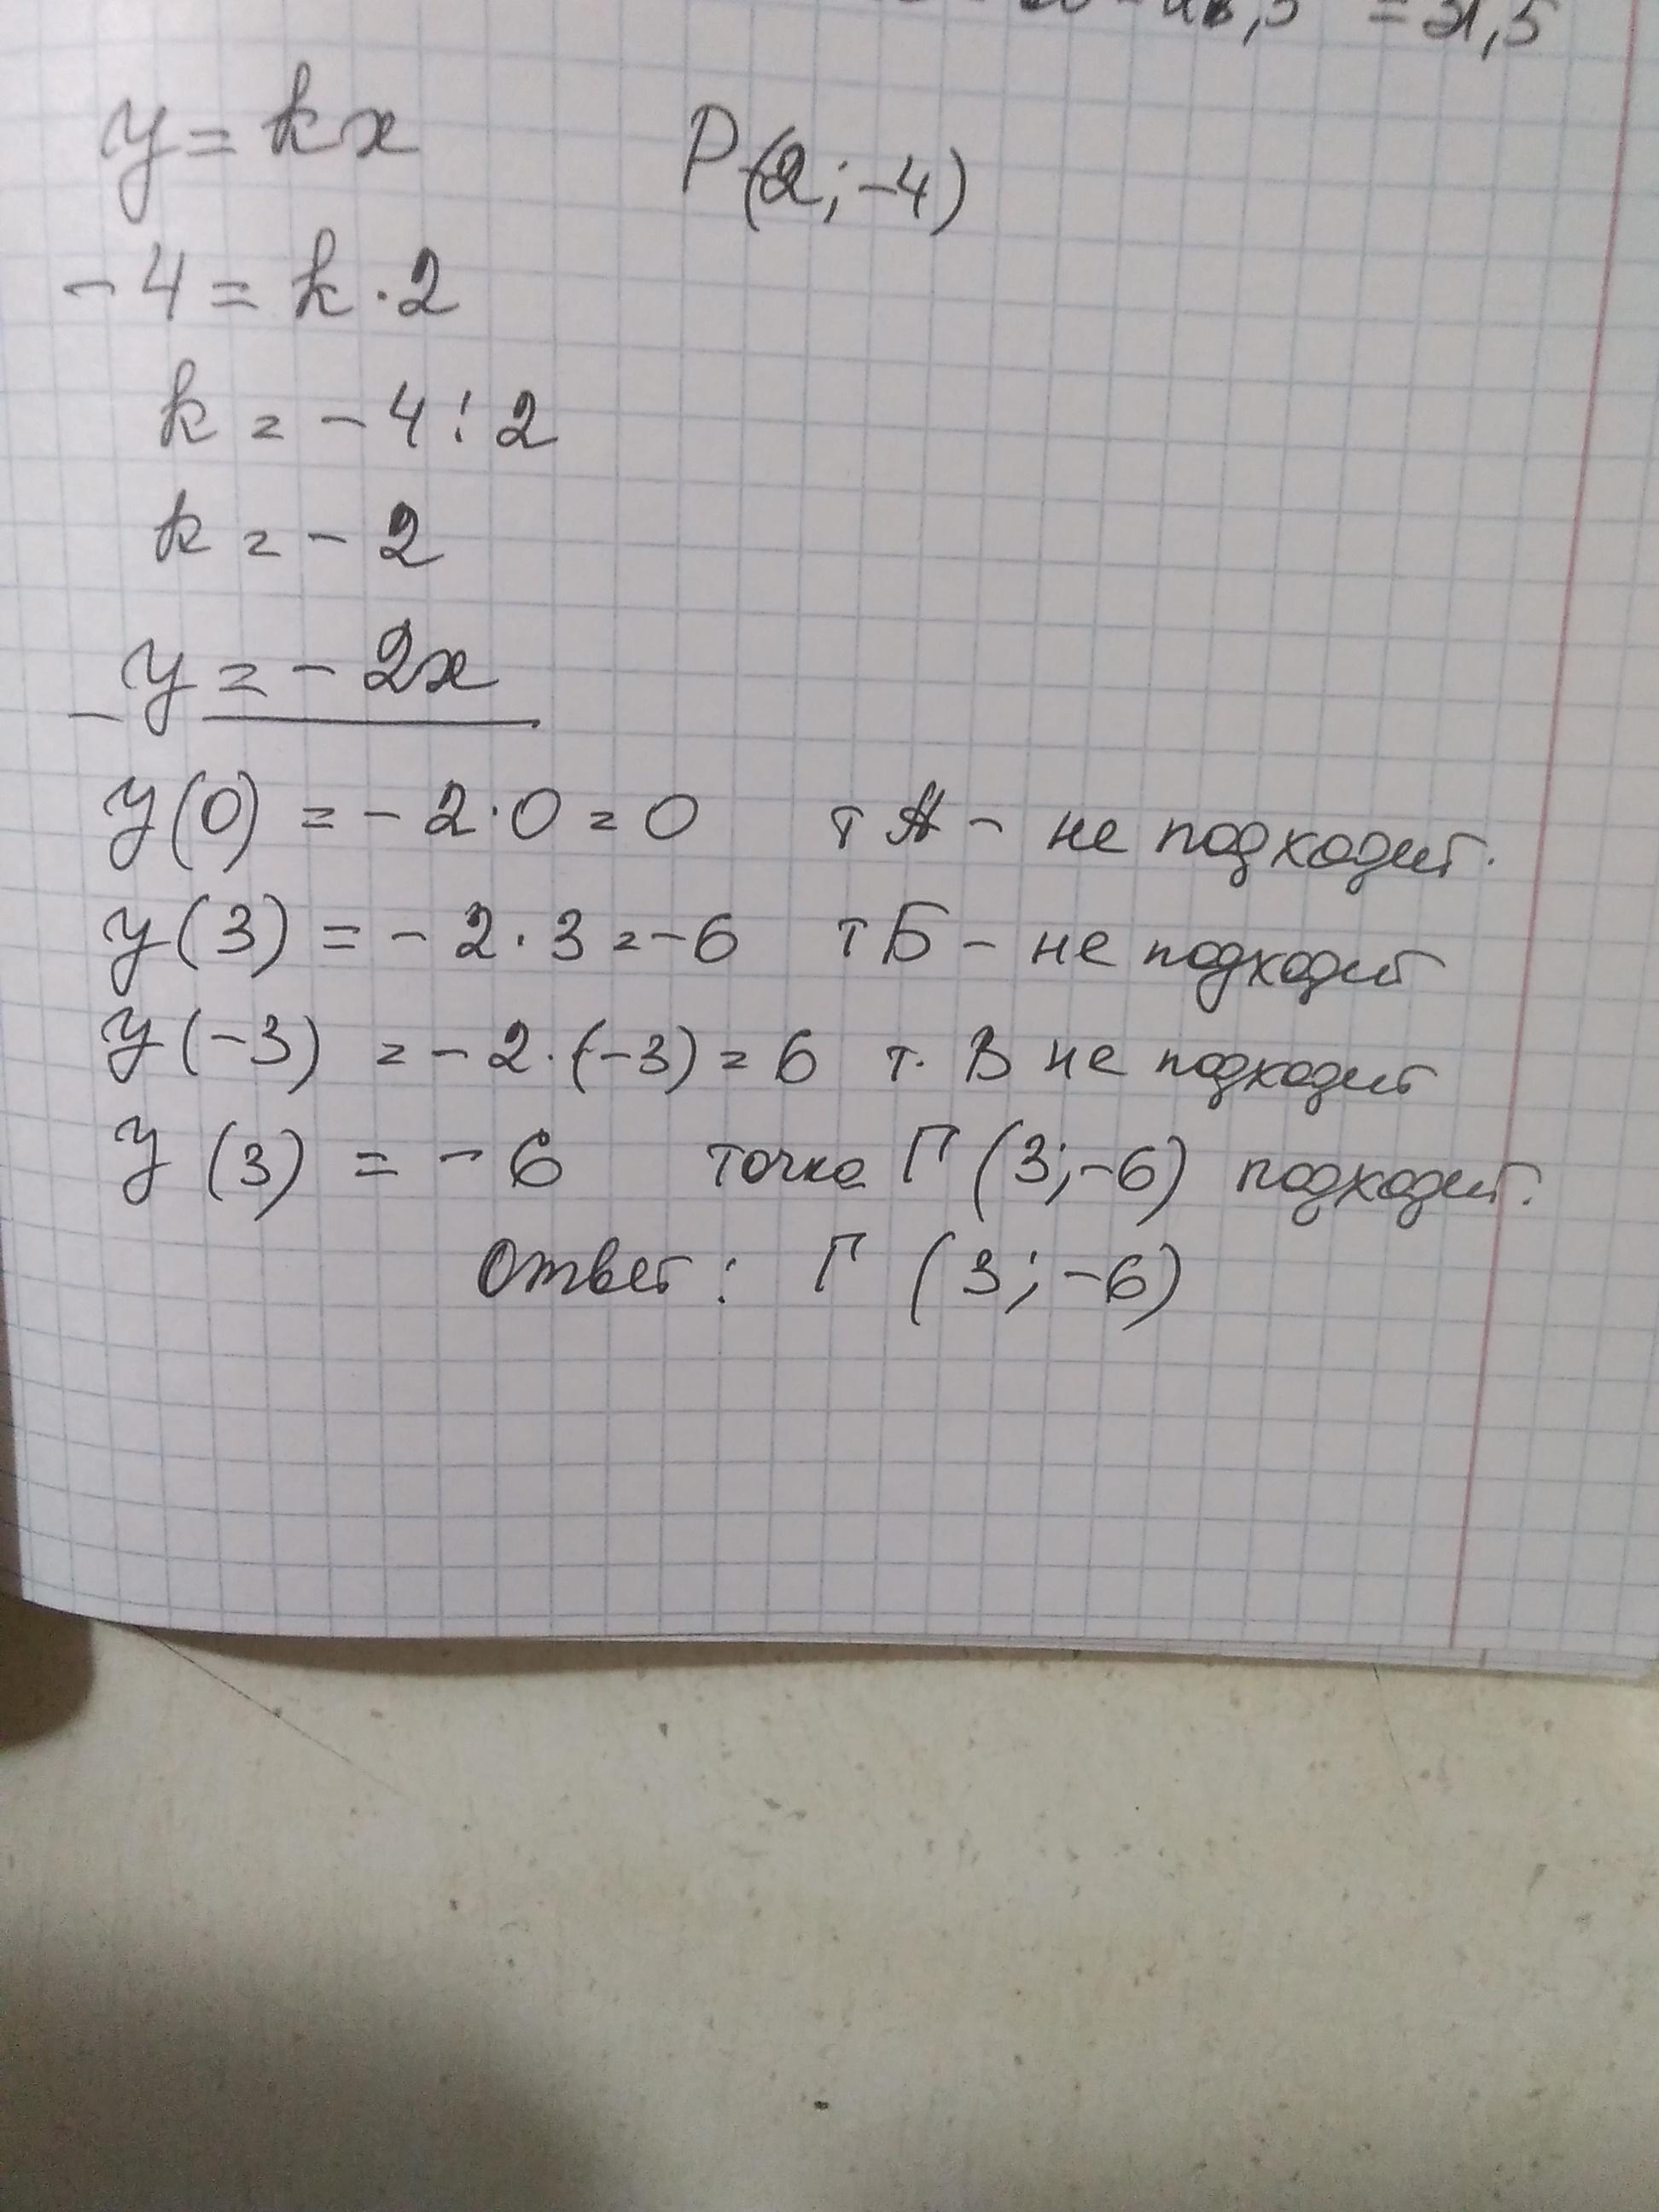 = 31,5
y = kx P(2; -4)
- 4 = k · 2
k = - 4 : 2
k = - 2
y = - 2x
y(0) = - 2 · 0 = 0 т А - не подходит.
y(3) = - 2 · 3 = -6 т Б - не подходит
y(-3) = - 2 · (-3) = 6 т. В не подходит
y (3) = - 6 точка Г (3; -6) подходит.
Ответ : Г (3; -6)